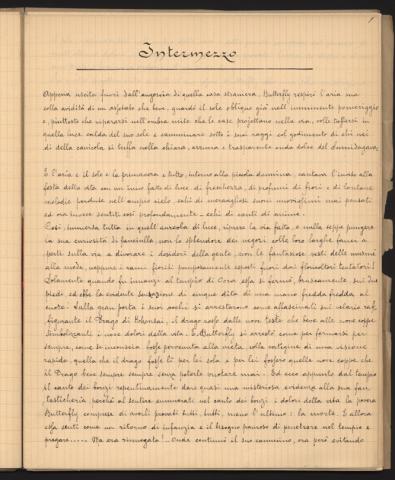 1
Intermezzo
Appena uscita fuori dall'angoscia di quella casa straniera, Butterfly respirò l'aria sua
colla avidità di un assetato che beve, guardò il sole obliquo già nell'imminente pomeriggio
e, piuttosto che ripararsi nell'ombra mite che le case projettano nella via, volle tuffarsi in
quella luce calda del suo sole e camminare sotto i suoi raggi col godimento di chi nei
dì della canicola si tuffa nella chiara, azzurra e trasparente onda dolce del Sumidagava.
E l'aria e il sole e la primavera e tutto, intorno alla piccola dannina, cantava l'inno alla
festa della vita con un inno fatto di luce, di freschezza, di profumi di fiori e di lontane
melodie perdute nell'ampio cielo, echi di meravigliosi suoni mormorii mai pensati
ed ora invece sentiti così profondamente - echi di canti di anime.
Così, immersa tutta in quell'incendio di luce, riprese la via fatta, e nulla seppe pungere
la sua curiosità di fanciulla, non lo splendore dei negozi colle loro larghe fauci a-
perte sulla via a divorare i desideri della gente, non le fantasiose vesti delle musmè
alla moda, neppure i rami fioriti pomposamente esposti fuori dai floricultori tentatori!
Solamente quando fu innanzi al tempio di Osra essa si fermò, bruscamente sui due
piedi ed ebbe la evidente sensazione di cinque dita di una mano fredda fredda al
cuore. Sulla gran porta i suoi occhi si arrestarono come allucinati sul velario raf-
figurante il Drago di, il drago color dalle nove teste che beve alle nove coppe
simbolizzanti i nove dolori della vita. E Butterfly si arrestò come per fermarsi per
sempre, come se innanzi a fosse pervenuta alla vista colla vertigine di una visione
rapida, quella che il drago fosse lì per lei sola e per lei fossero quelle nove coppe che
il Drago beve sempre sempre senza poterle vuotare mai. Ed ecco appunto dal tempio
il canto dei bonzi repentinamente dare quasi una misteriosa evidenza alla sua fan-
tasticheria perchè al sentire enumerati nel canto dei bonzi i dolori della vita la povera
Butterfly comprese di averli provati tutti, tutti, meno l'ultimo: la morte. E allora
essa sentì come un ritorno di infanzia e il bisogno pauroso di penetrare nel tempio e
pregare..... Ma era rinnegata!... Onde continuò il suo cammino, ora però evitando